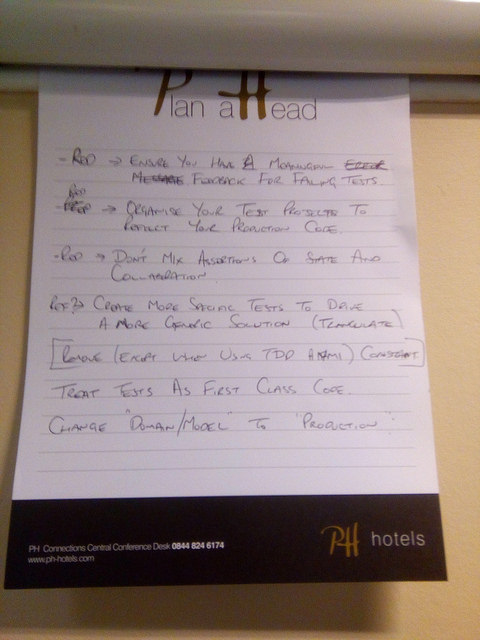 Plan a Head
- RED → ENSURE YOU HAVE A MEANINGFUL ERROR
MESSAGE FEEDBACK FOR FAILING TESTS.
RED
→ ORGANISE YOUR TEST PROJECTS TO
REFLECT YOUR PRODUCTION CODE.
- RED → DON'T MIX ASSERTIONS OF STATE AND
COLLABORATION
CREATE MORE SPECIFIC TESTS TO DRIVE
A MORE GENERIC SOLUTION (TRIANGULATE)
[REMOVE (EXCEPT WHEN USING TDD) CONSTANT]
TREAT TESTS AS FIRST CLASS CODE.
CHANGE "DOMAIN/MODEL" TO "PRODUCTION".
PH Connections Central Conference Desk 0844 824 6174
www.ph-hotels.com
PH hotels